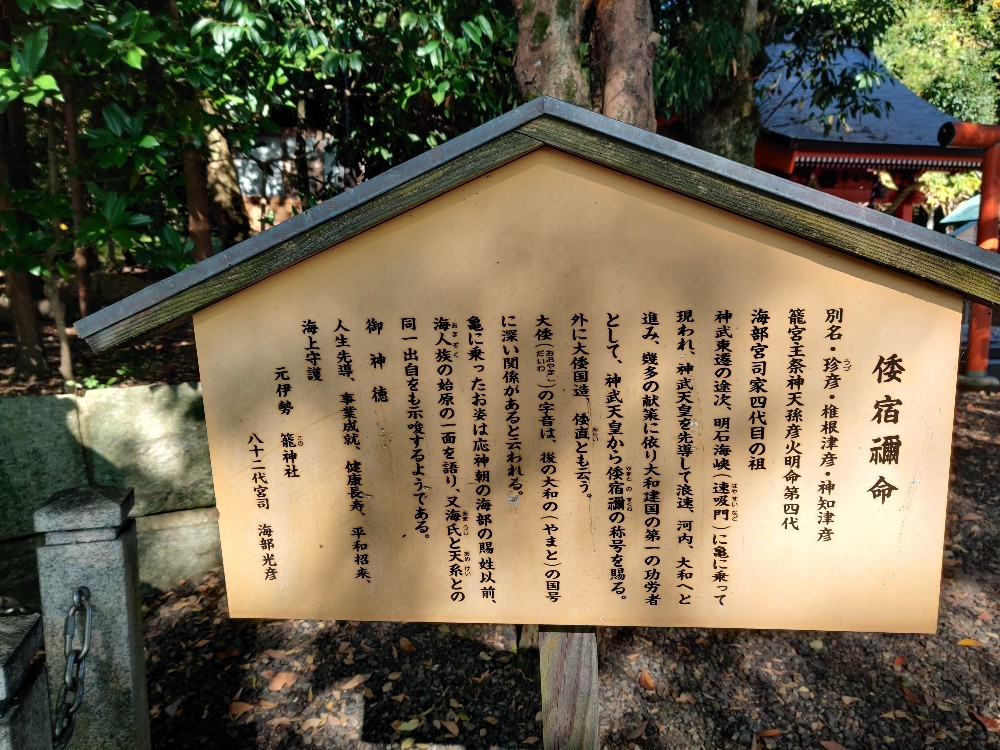 倭宿禰命
別名・珍彦・椎根津彦・神知津彦
籠宮主祭神天孫彦火明命第四代
海部宮司家四代目の祖
神武東遷の途次、明石海峡(速吸門)に亀に乗って
現われ、神武天皇を先導して浪速、河内、大和へと
進み、幾多の献策に依り大和建国の第一の功労者
として、神武天皇から倭宿禰の称号を賜る。
外に大倭国造、倭直とも云う。
大倭()の字音は、後の大和の(やまと)の国号
に深い関係があると云われる。
亀に乗ったお姿は応神朝の海部の賜姓以前、
海人族の始原の一面を語り、又海氏と天系との
同一出自をも示唆するようである。
御神徳
人生先導、事業成就、健康長寿、平和招来、
海上守護
元伊勢 籠神社
八十二代宮司 海部光彦